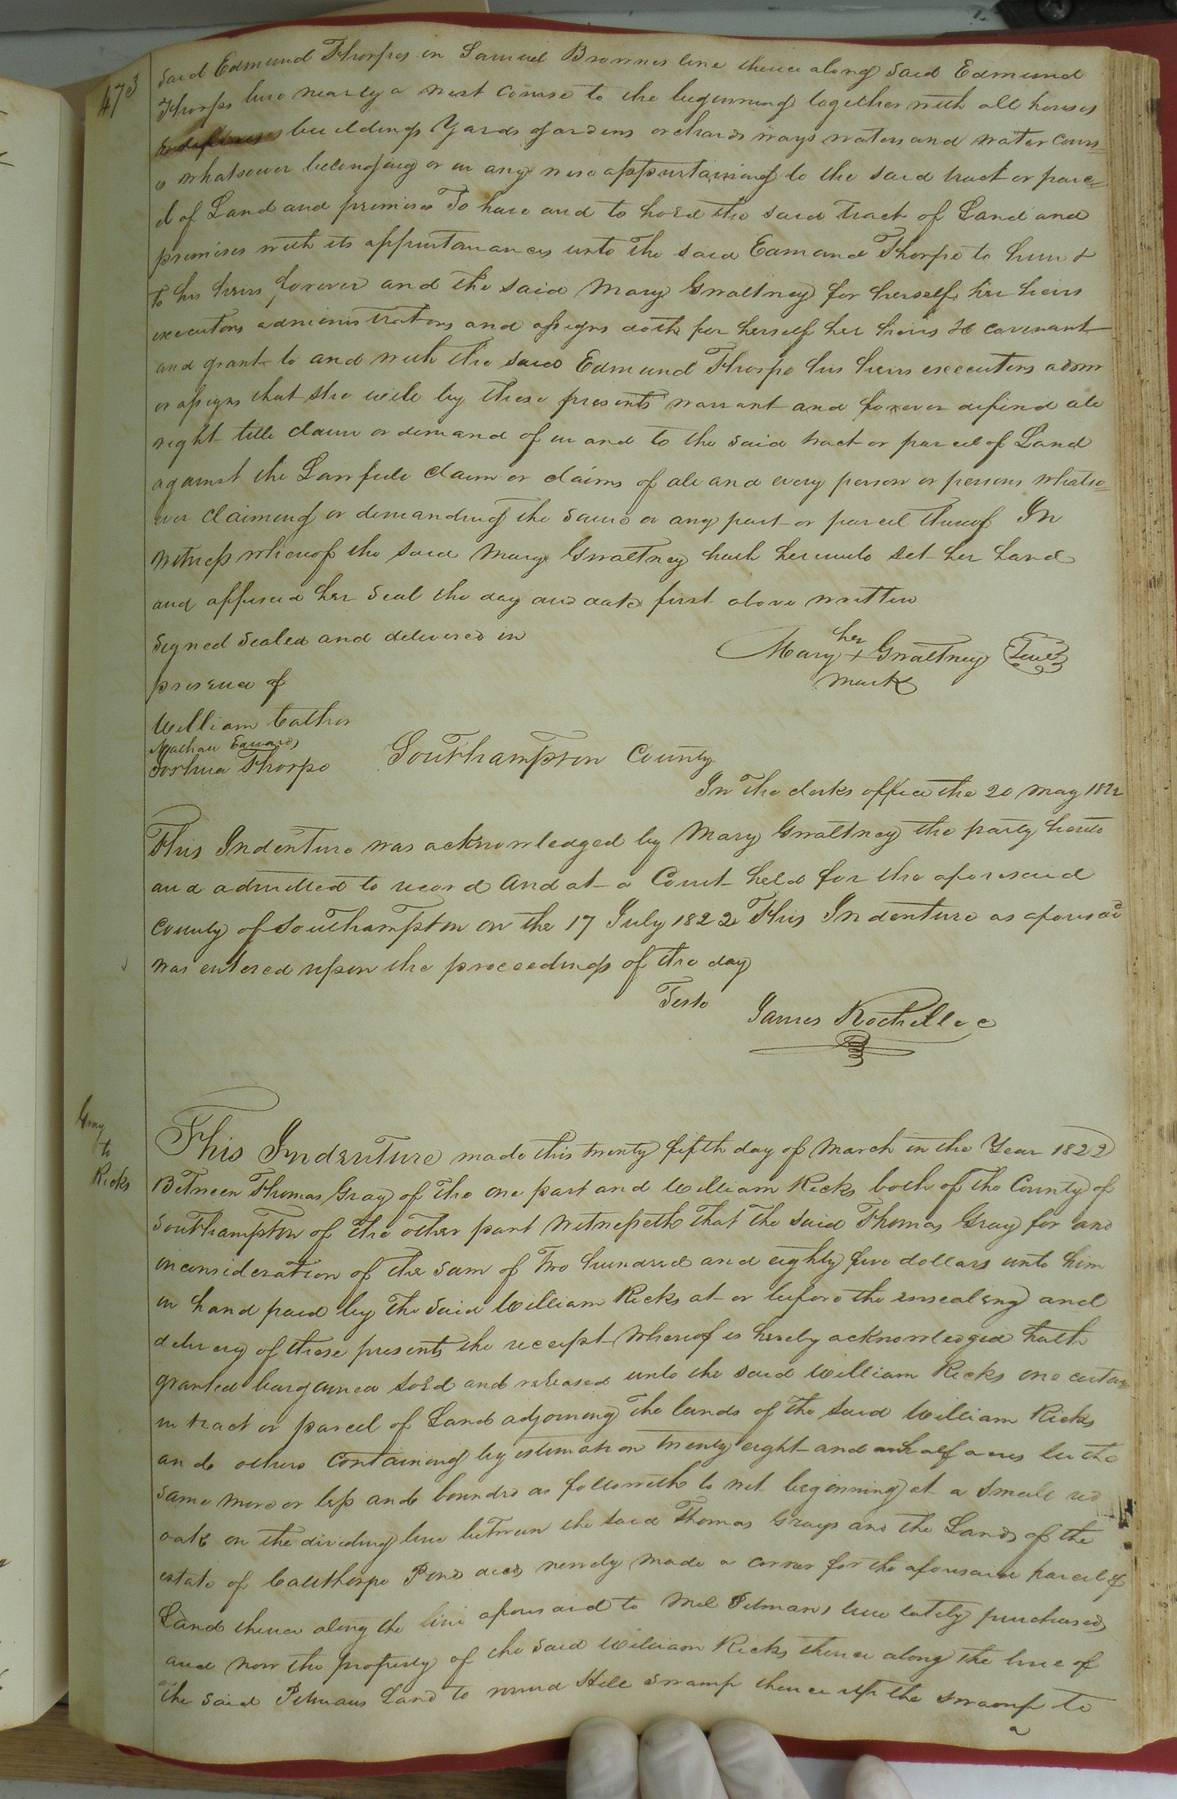 473
said Edmund Thorpes in Samuel Brownes line thence along said Edmund
Thorps line nearly a west course to the beginning together with all houses
buildings Yards gardens orchards ways waters and water cours
es whatsoever belonging or in any wise appurtaining to the said tract or parc=
el of Land and premises To have and to hold the said tract of Land and
premises with its appurtanances unto the said Edmand Thorpe to him &
to his heirs forever and the said Mary Gwaltney for herself her heirs
executors administrators and assigns doth for herself her heirs &c covenant
and grant to and with the said Edmund Thorpe his heirs executors adom
or assigns that she will by these presents warrant and forever defend all
right title claim or demand of in and to the said tract or parcel of Land
against the Lawfull claim or claims of all and every person or persons whatso=
ever claiming or demanding the same or any part or parcel thereof In
witness whereof the said Mary Gwaltney hath hereunto set her hand
and affixed her Seal the day and date first above written
Signed Sealed and delivered in
presence of
her
Mary + Gwaltney Seal
mark
William Cathos
Nathan Edwards
Joshua Thorpe
Southampton County
In the clerks office the 20 May 1822
This Indenture was acknowledged by Mary Gwaltney the party hereto
and admitted to record And at a Court held for the aforesaid
County of Southampton on the 17 July 1822 This Indenture as aforesaid
was entered upon the proceedings of the day
Teste
James Rochelle c
Gray
to
Ricks
This Indenture made this twenty fifth day of March in the Year 1822
Between Thomas Gray of the one part and William Ricks both of the County of
Southampton of the other part Witnesseth that the said Thomas Gray for and
inconsideration of the sum of Two hundred and eighty five dollars unto him
in hand paid by the said William Ricks at or before the ensealing and
delivery of these presents the receipt whereof is hereby acknowledged hath
granted bargained sold and released unto the said William Ricks one certa
in tract or parcel of Land adjoining the lands of the said William Ricks
and others Containing by estimation twenty eight and half acres be the
same more or less and bounded as followeth to wit beginning at a small red
oak on the dividing line between the said Thomas Grays and the Lands of the
estate of Caulthorpe Pond decd newly made a corner for the aforesaid parcel of
Land thence along the line aforesaid to Mel Pitmans line lately purchased
and now the property of the said William Ricks thence along the line of
the said Pitmans Land to mund Hill swamp thence up the swamp to
a